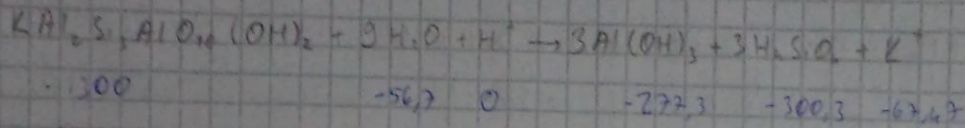 KAl₂Si₃AlO₁₀(OH)₂ + 9H₂O + H⁺ → 3Al(OH)₃ + 3H₄SiO₄ + K⁺
-1300 -56,7 0 -277,3 -300,3 -67,47